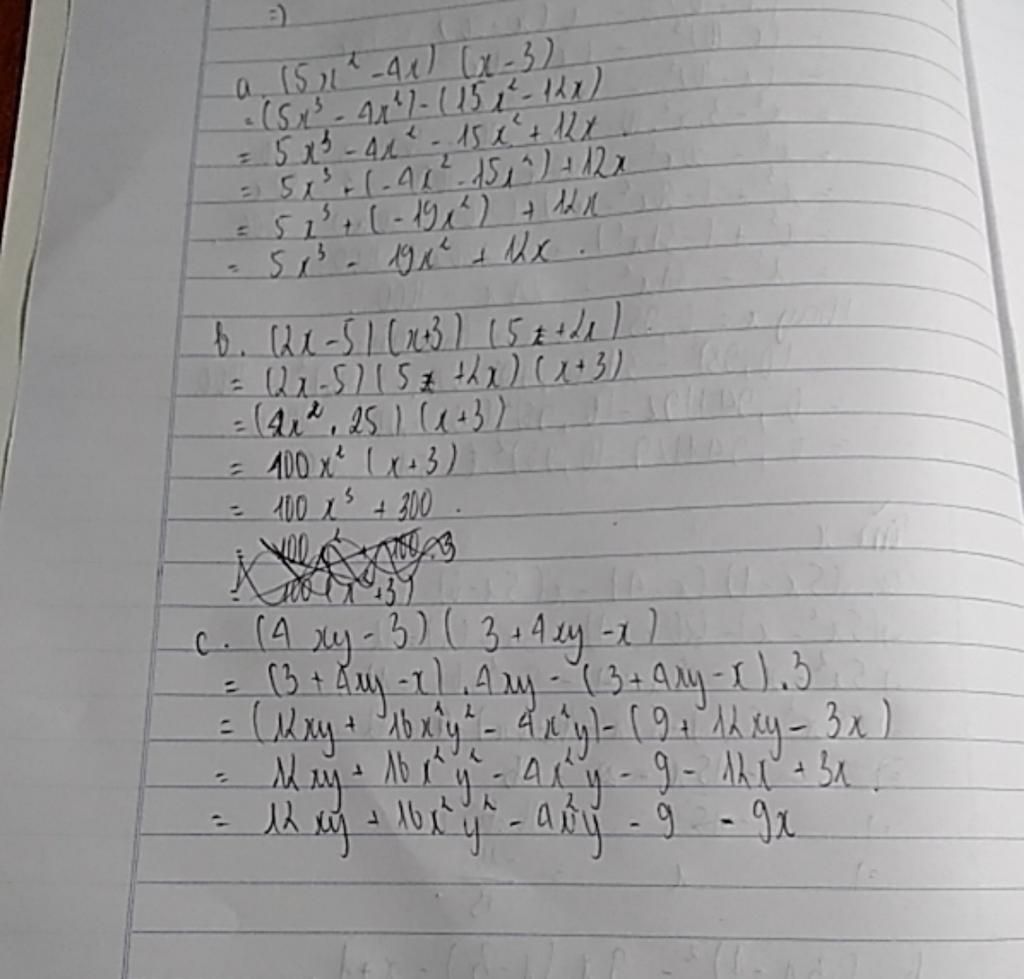 =)
a. (5x² - 4x) (x - 3)
= (5x³ - 4x²) - (15x² - 12x)
= 5x³ - 4x² - 15x² + 12x
= 5x³ + (-4x² - 15x²) + 12x
= 5x³ + (-19x²) + 12x
= 5x³ - 19x² + 12x.
b. (2x - 5) (x+3) (5 + 2x)
= (2x - 5) (5 + 2x) (x + 3)
= (4x² . 25) (x + 3)
= 100x² (x + 3)
= 100x³ + 300.
c. (4xy - 3) (3 + 4xy - x)
= (3 + 4xy - x) . 4xy - (3 + 4xy - x) . 3
= (12xy + 16x²y² - 4x²y) - (9 + 12xy - 3x)
= 12xy + 16x²y² - 4x²y - 9 - 12x + 3x.
= 12xy + 16x²y² - 4x²y - 9 - 9x